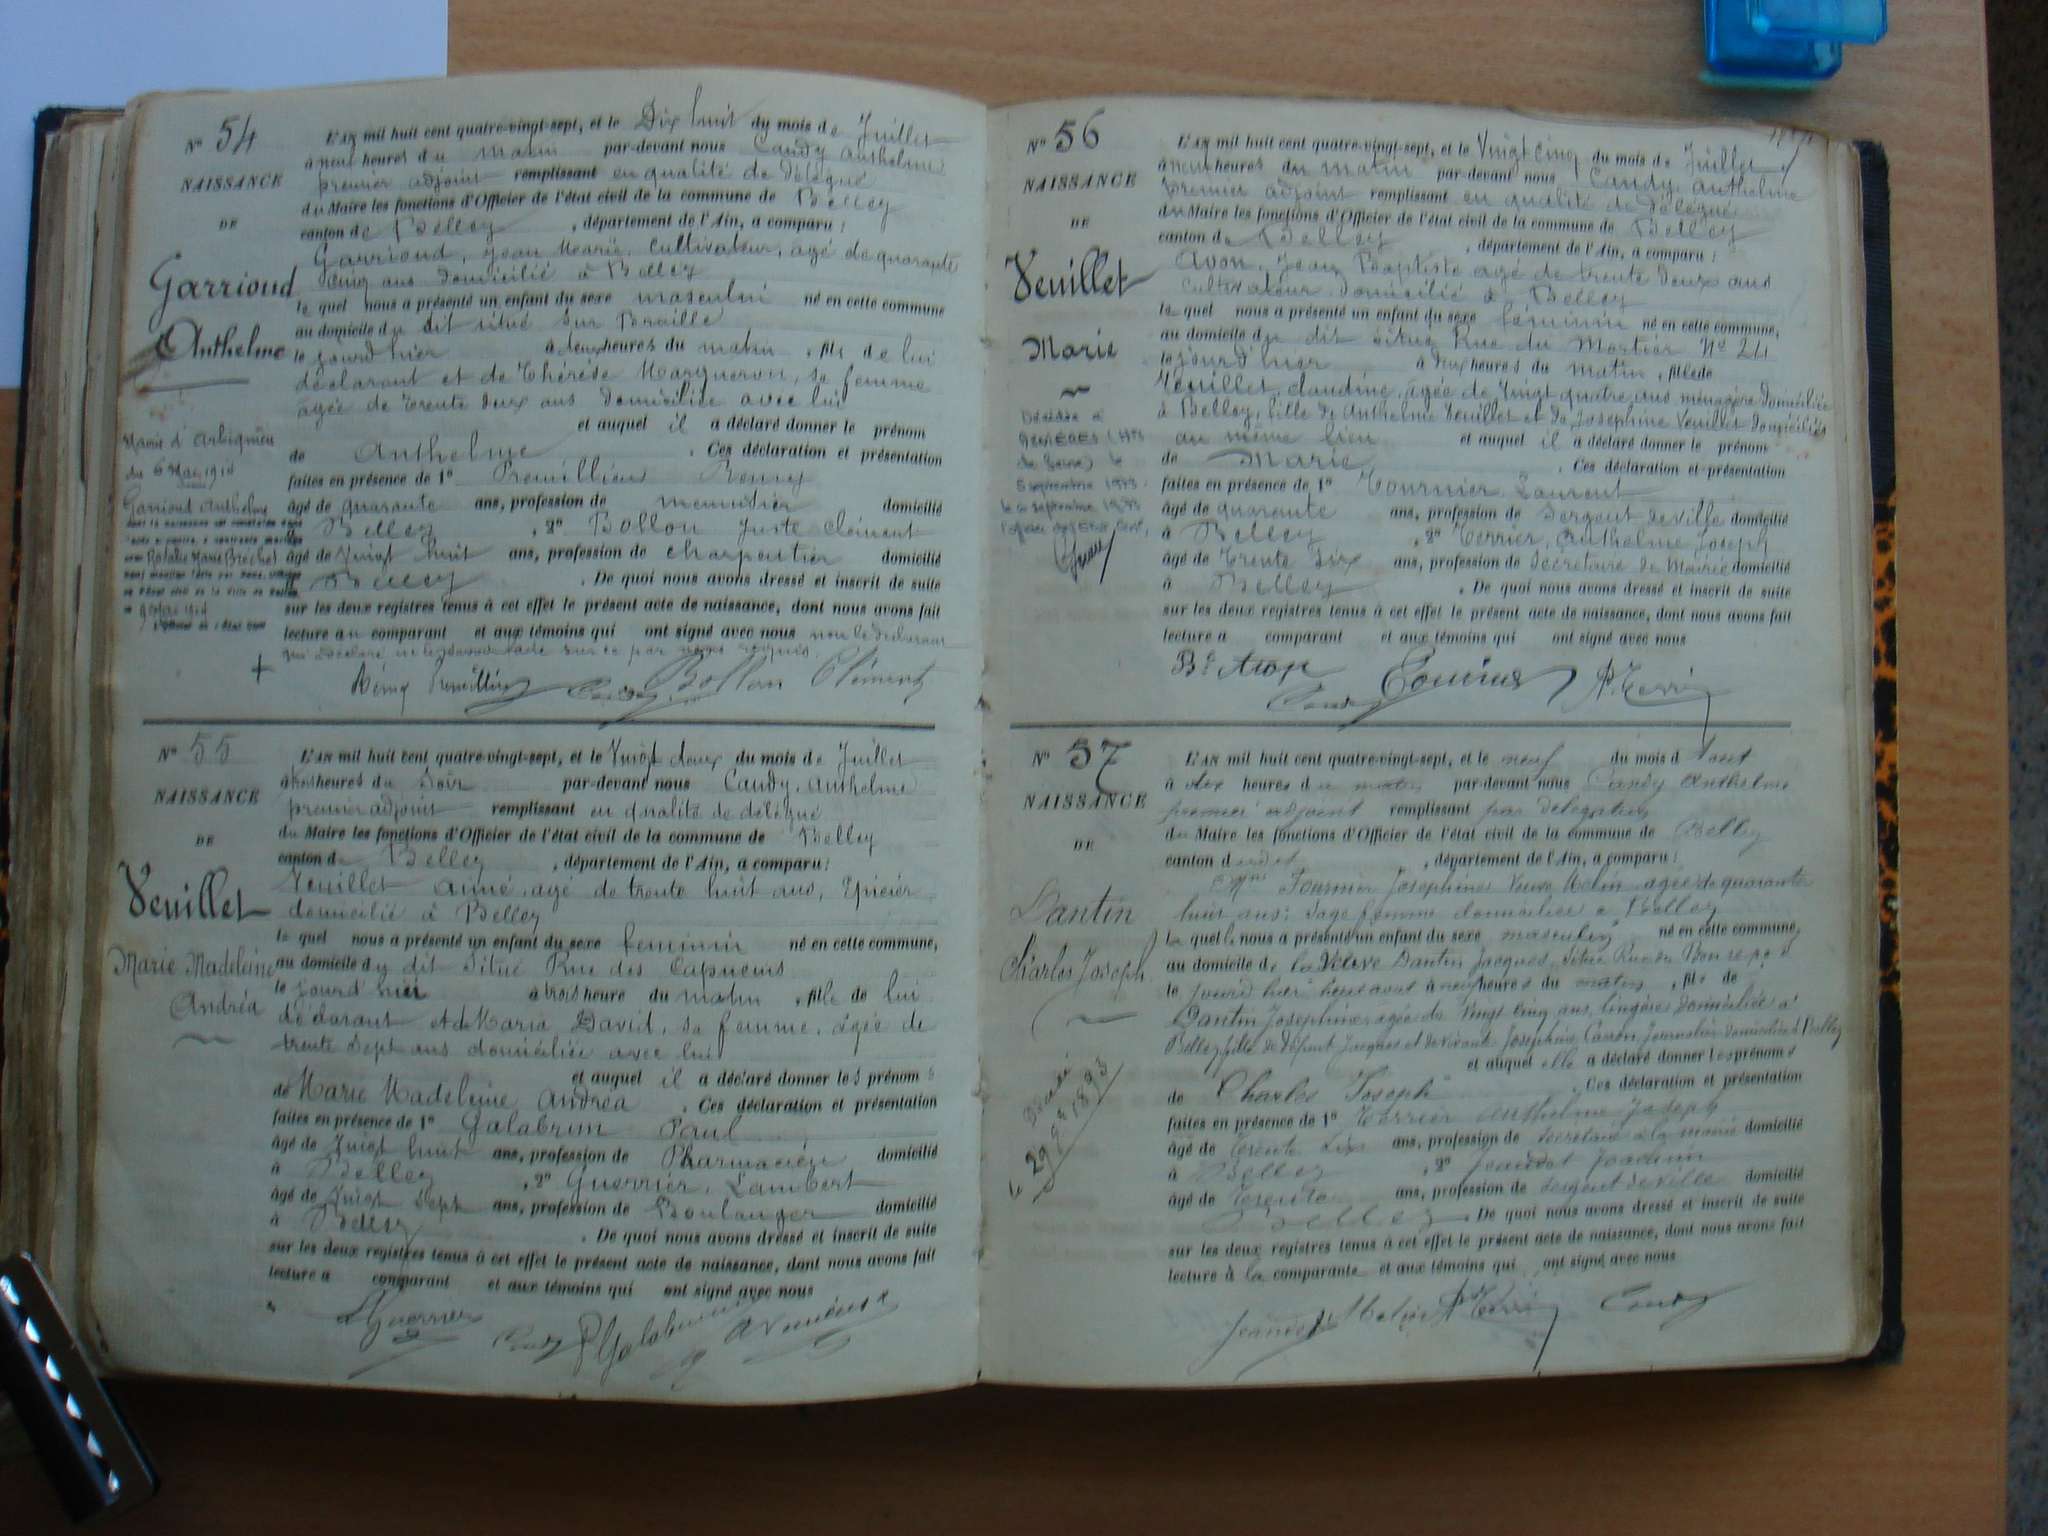 N° 54
NAISSANCE
DE
Garrioud
Anthelme
L'AN mil huit cent quatre-vingt-sept, et le Dix huit du mois de Juillet
à neuf heures du matin par-devant nous Candy Anthelme
premier adjoint remplissant en qualité de délégué
du Maire les fonctions d'Officier de l'état civil de la commune de Belley
canton de Belley, département de l'Ain, a comparu :
Garrioud, Jean Marie, Cultivateur, âgé de quarante
cinq ans domicilié à Belley
le quel nous a présenté un enfant du sexe masculin né en cette commune
au domicile du dit situé sur Braille
le jourd'hier à deux heures du matin, fils de lui
déclarant et de Thérèse Marqueron, sa femme
âgée de trente deux ans domiciliée avec lui
et auquel il a déclaré donner le prénom
de Anthelme. Ces déclaration et présentation
faites en présence de 1° Premillieu Remy
âgé de quarante ans, profession de menuisier domicilié
à Belley, 2° Bollon Juste Clément
âgé de vingt huit ans, profession de charpentier domicilié
à Belley. De quoi nous avons dressé et inscrit de suite
sur les deux registres tenus à cet effet le présent acte de naissance, dont nous avons fait
lecture au comparant et aux témoins qui ont signé avec nous non le déclarant
Bollon Clément
Mairie d'Arbignieu
du 6 1914
Garrioud Anthelme
N° 55
NAISSANCE
DE
Veuillet
Marie Madeleine
Andréa
L'AN mil huit cent quatre-vingt-sept, et le Vingt deux du mois de Juillet
à trois heures du soir par-devant nous Candy, Anthelme
premier adjoint remplissant en qualité de délégué
du Maire les fonctions d'Officier de l'état civil de la commune de Belley
canton de Belley, département de l'Ain, a comparu :
Veuillet Aimé, âgé de trente huit ans, Epicier
domicilié à Belley
le quel nous a présenté un enfant du sexe féminin né en cette commune,
au domicile du dit situé Rue des Capucins
le jourd'hier à trois heure du matin, fille de lui
déclarant et de Maria David, sa femme, âgée de
trente sept ans domiciliée avec lui
et auquel il a déclaré donner les prénoms
de Marie Madeleine Andréa. Ces déclaration et présentation
faites en présence de 1° Galabrun Paul
âgé de Vingt huit ans, profession de Pharmacien domicilié
à Belley, 2° Guerrier, Lambert
âgé de Vingt sept ans, profession de Boulanger domicilié
à Belley. De quoi nous avons dressé et inscrit de suite
sur les deux registres tenus à cet effet le présent acte de naissance, dont nous avons fait
lecture a comparant et aux témoins qui ont signé avec nous
Guerrier
N° 56
NAISSANCE
DE
Veuillet
Marie
L'AN mil huit cent quatre-vingt-sept, et le Vingt cinq du mois de Juillet
à neuf heures du matin par-devant nous Candy, Anthelme
Premier adjoint remplissant en qualité de délégué
du Maire les fonctions d'Officier de l'état civil de la commune de Belley
canton de Belley, département de l'Ain, a comparu :
Avon, Jean Baptiste âgé de trente deux ans
Cultivateur domicilié à Belley
le quel nous a présenté un enfant du sexe féminin né en cette commune,
au domicile du dit situé Rue du Mortier N° 24
le jourd'hier à dix heures du matin, fille de
Veuillet, Claudine, âgée de Vingt quatre ans ménagère domiciliée
à Belley, fille de Anthelme Veuillet et de Josephine Veuillet domiciliés
au même lieu et auquel il a déclaré donner le prénom
de Marie. Ces déclaration et présentation
faites en présence de 1° Tournier Laurent
âgé de quarante ans, profession de Sergent de ville domicilié
à Belley, 2° Terrier, Anthelme Joseph
âgé de Trente Six ans, profession de Secrétaire de Mairie domicilié
à Belley. De quoi nous avons dressé et inscrit de suite
sur les deux registres tenus à cet effet le présent acte de naissance, dont nous avons fait
lecture a comparant et aux témoins qui ont signé avec nous
Décédée à
N° 57
NAISSANCE
DE
Dantin
Charles Joseph
L'AN mil huit cent quatre-vingt-sept, et le neuf du mois d'Aout
à dix heures du matin par-devant nous Candy Anthelme
premier adjoint remplissant par délégation
du Maire les fonctions d'Officier de l'état civil de la commune de Belley
canton dudit, département de l'Ain, a comparu :
Fournier Josephine Veuve Molin âgée de quarante
huit ans, Sage femme domiciliée à Belley
la quelle nous a présenté un enfant du sexe masculin né en cette commune,
au domicile de la Veuve Dantin Jacques, située Rue du Bon repos
le jourd'hier à neuf heures du matin, fils de
Dantin Josephine, âgée de Vingt cinq ans, lingère domiciliée à
Belley fille de défunt Jacques et de vivante Josephine Journalière domiciliée à Belley
et auquel elle a déclaré donner les prénoms
de Charles Joseph. Ces déclaration et présentation
faites en présence de 1° Terrier Anthelme Joseph
âgé de Trente Six ans, profession de Secrétaire à la mairie domicilié
à Belley, 2° Jeandet Joachim
âgé de Trente ans, profession de Sergent de ville domicilié
à Belley. De quoi nous avons dressé et inscrit de suite
sur les deux registres tenus à cet effet le présent acte de naissance, dont nous avons fait
lecture à la comparante et aux témoins qui ont signé avec nous
Candy
Décédé
le 29 1893